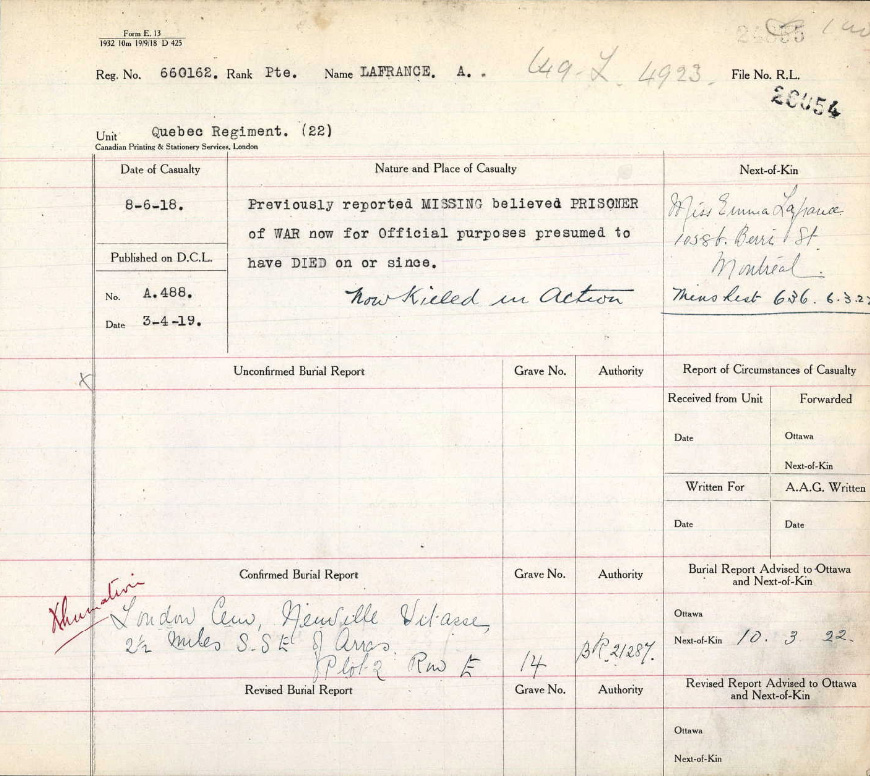 Form E. 13
1932 10m 19/9/18 D 425
Reg. No. 660162. Rank Pte. Name LAFRANCE. A. . 649-L. 4923. File No. R.L.
Unit Quebec Regiment. (22)
Canadian Printing & Stationery Services, London
Date of Casualty
Nature and Place of Casualty
Next-of-Kin
8-6-18.
Previously reported MISSING believed PRISONER
of WAR now for Official purposes presumed to
have DIED on or since.
Now Killed in Action
Miss Emma Lafrance.
Berri St.
Montréal.
636. 6.3.2
Published on D.C.L.
No. A.488.
Date 3-4-19.
Unconfirmed Burial Report
Grave No.
Authority
Report of Circumstances of Casualty
Received from Unit
Forwarded
Date
Ottawa
Next-of-Kin
Written For
A.A.G. Written
Date
Date
X
Confirmed Burial Report
Grave No.
Authority
Burial Report Advised to Ottawa
and Next-of-Kin
Xhumation
London Cem, Neuville Vitasse,
2½ miles S.S E of Arras.
Plot 2 Row E 14 BR.21287.
Ottawa
Next-of-Kin 10. 3 22.
Revised Burial Report
Grave No.
Authority
Revised Report Advised to Ottawa
and Next-of-Kin
Ottawa
Next-of-Kin